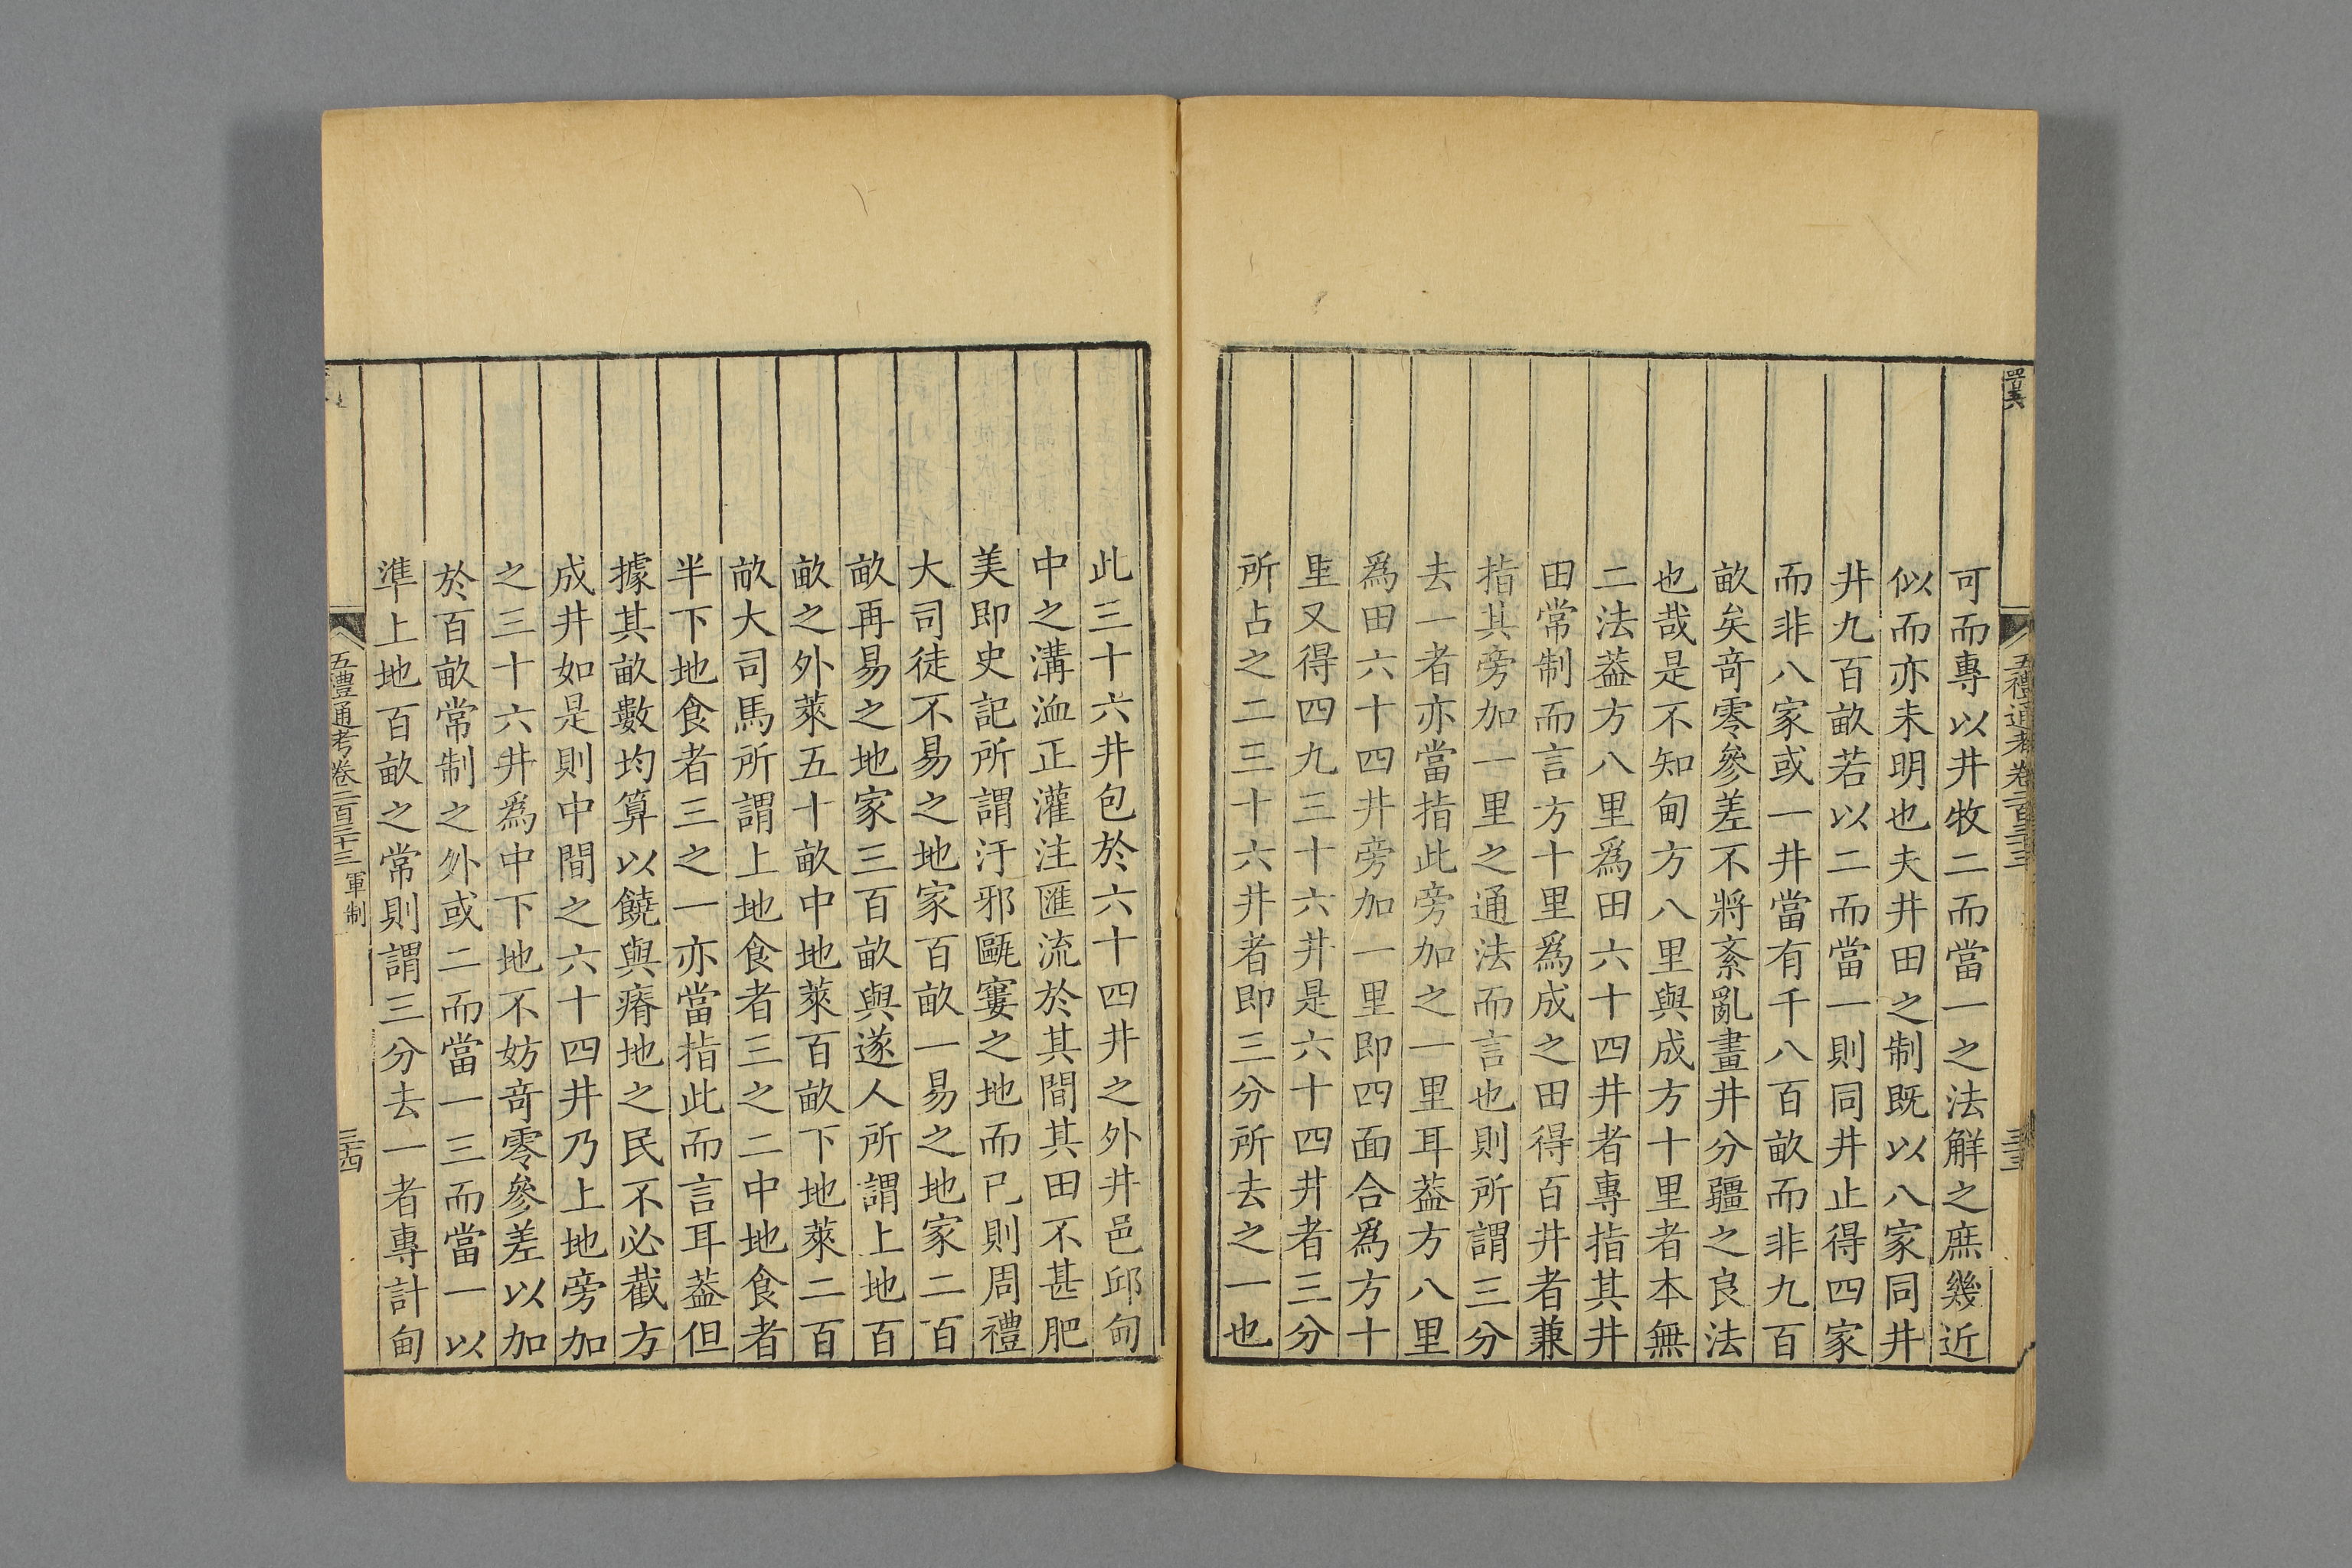 五禮通考卷二百三十三
可而專以井牧二而當一之法解之庶幾近
似而亦未明也夫井田之制既以八家同井
井九百畝若以二而當一則同井止得四家
而非八家或一井當有千八百畝而非九百
畝矣奇零參差不將紊亂畫井分疆之良法
也哉是不知甸方八里與成方十里者本無
二法葢方八里爲田六十四井者專指其井
田常制而言方十里爲成之田得百井者兼
指其旁加一里之通法而言也則所謂三分
去一者亦當指此旁加之一里耳葢方八里
爲田六十四井旁加一里即四面合爲方十
里又得四九三十六井是六十四井者三分
所占之二三十六井者即三分所去之一也
此三十六井包於六十四井之外井邑邱甸
中之溝洫正灌注匯流於其間其田不甚肥
美即史記所謂汙邪甌窶之地而已則周禮
大司徒不易之地家百畝一易之地家二百
畝再易之地家三百畝與遂人所謂上地百
畝之外萊五十畝中地萊百畝下地萊二百
畝大司馬所謂上地食者三之二中地食者
半下地食者三之一亦當指此而言耳葢但
據其畝數均算以饒與瘠地之民不必截方
成井如是則中間之六十四井乃上地旁加
之三十六井爲中下地不妨奇零參差以加
於百畝常制之外或二而當一三而當一以
準上地百畝之常則謂三分去一者專計甸
五禮通考卷二百三十三 軍制
三四